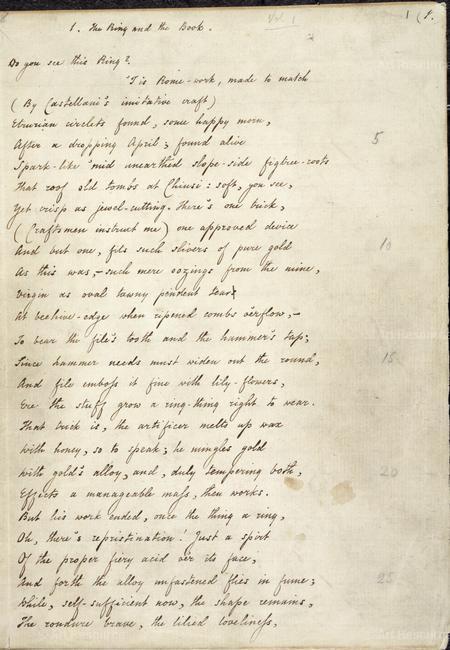 1. The Ring and the Book.
Vol 1
1 (1.
Do you see this Ring?
'Tis Rome-work, made to match
(By Castellani's imitative craft)
Etrurian circlets found, some happy morn,
After a dropping April; found alive
5
Spark-like 'mid unearthed slope-side figtree-roots
That roof old tombs at Chiusi: soft, you see,
Yet crisp as jewel-cutting. There's one trick,
(Craftsmen instruct me) one approved device
And but one, fits such slivers of pure gold
10
As this was, – such mere oozings from the mine,
Virgin as oval tawny pendent tear
At beehive-edge when ripened combs o'erflow, –
To bear the file's tooth and the hammer's tap;
Since hammer needs must widen out the round,
15
And file emboss it fine with lily-flowers,
Ere the stuff grow a ring-thing right to wear.
That trick is, the artificer melts up wax
With honey, so to speak; he mingles gold
With gold's alloy, and, duly tempering both,
20
Effects a manageable mass, then works.
But his work ended, once the thing a ring,
Oh, there's repristination! Just a spirt
Of the proper fiery acid o'er its face,
And forth the alloy unfastened flies in fume;
25
While, self-sufficient now, the shape remains,
The rondure brave, the lilied loveliness,